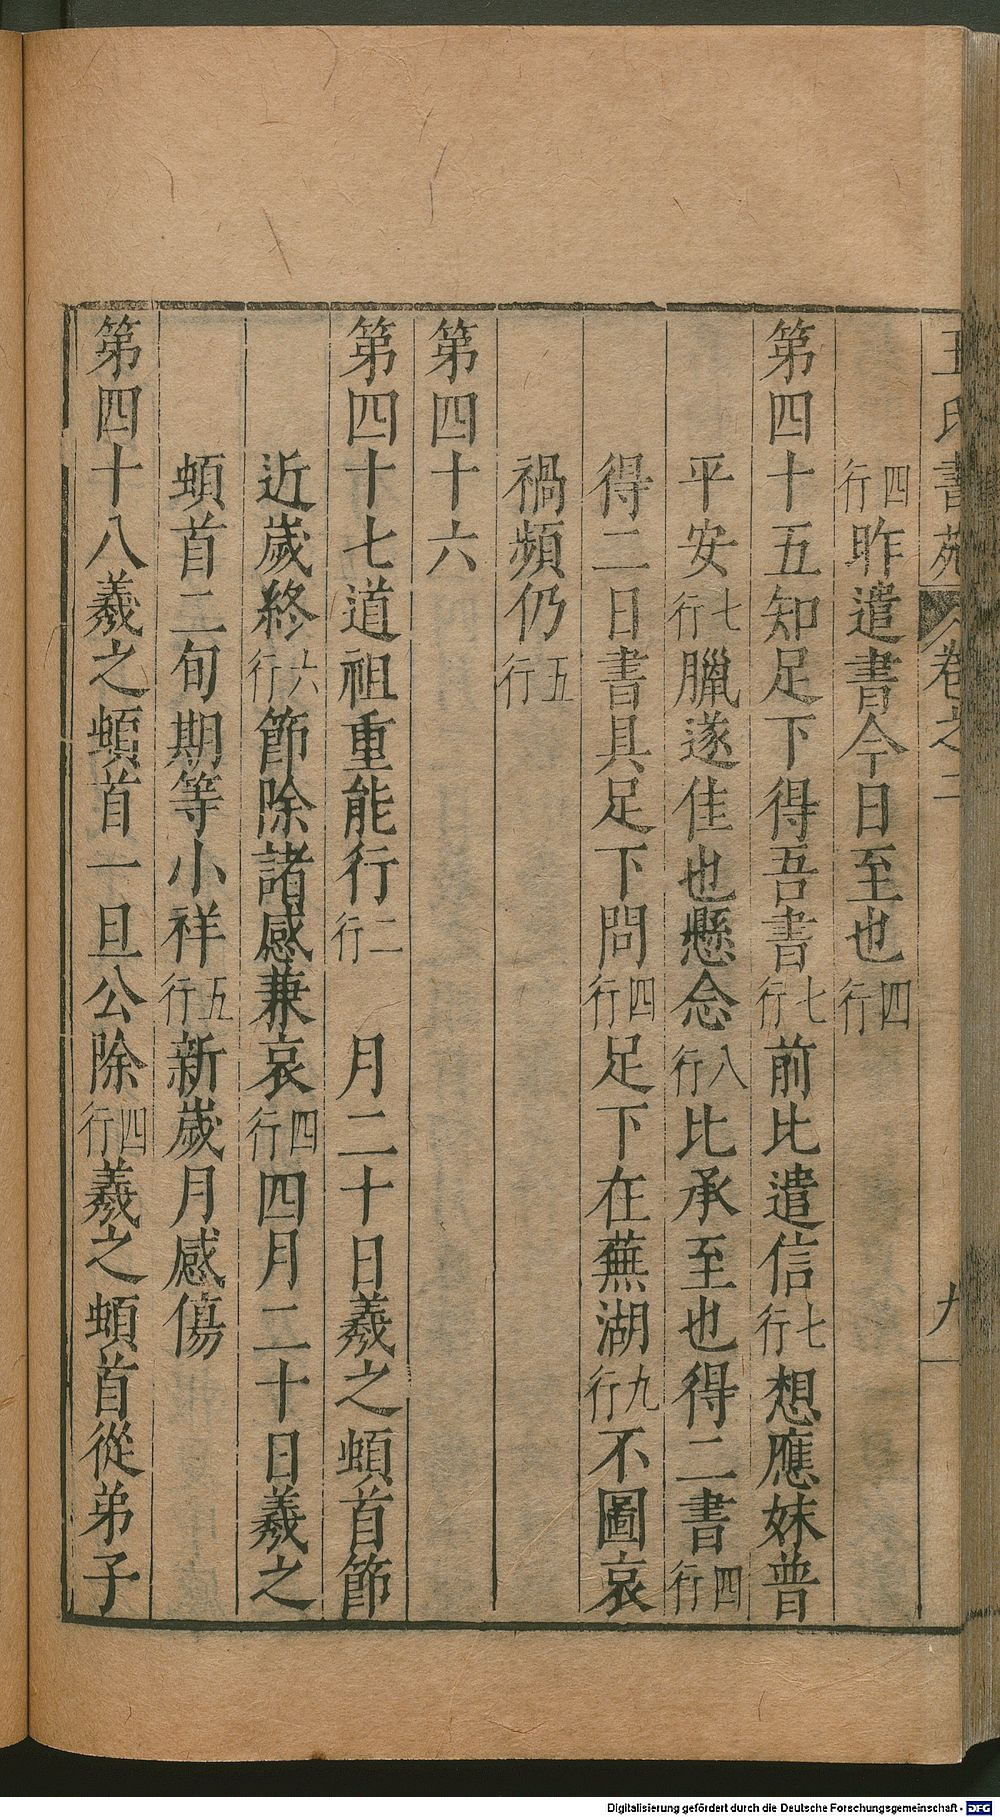 王氏書苑 卷之二 九
四行昨遣書今日至也四行
第四十五知足下得吾書七行前比遣信七行想應妹普
平安七行臘遂佳也懸念八行比承至也得二書四行
得二日書具足下問四行足下在蕪湖九行不圖哀
禍頻仍五行
第四十六
第四十七道祖重能行二行 月二十日羲之頓首節
近歲終六行節除諸感兼哀四行四月二十日羲之
頓首二旬期等小祥五行新歲月感傷
第四十八羲之頓首一旦公除四行羲之頓首從弟子
Digitalisierung gefördert durch die Deutsche Forschungsgemeinschaft - DFG